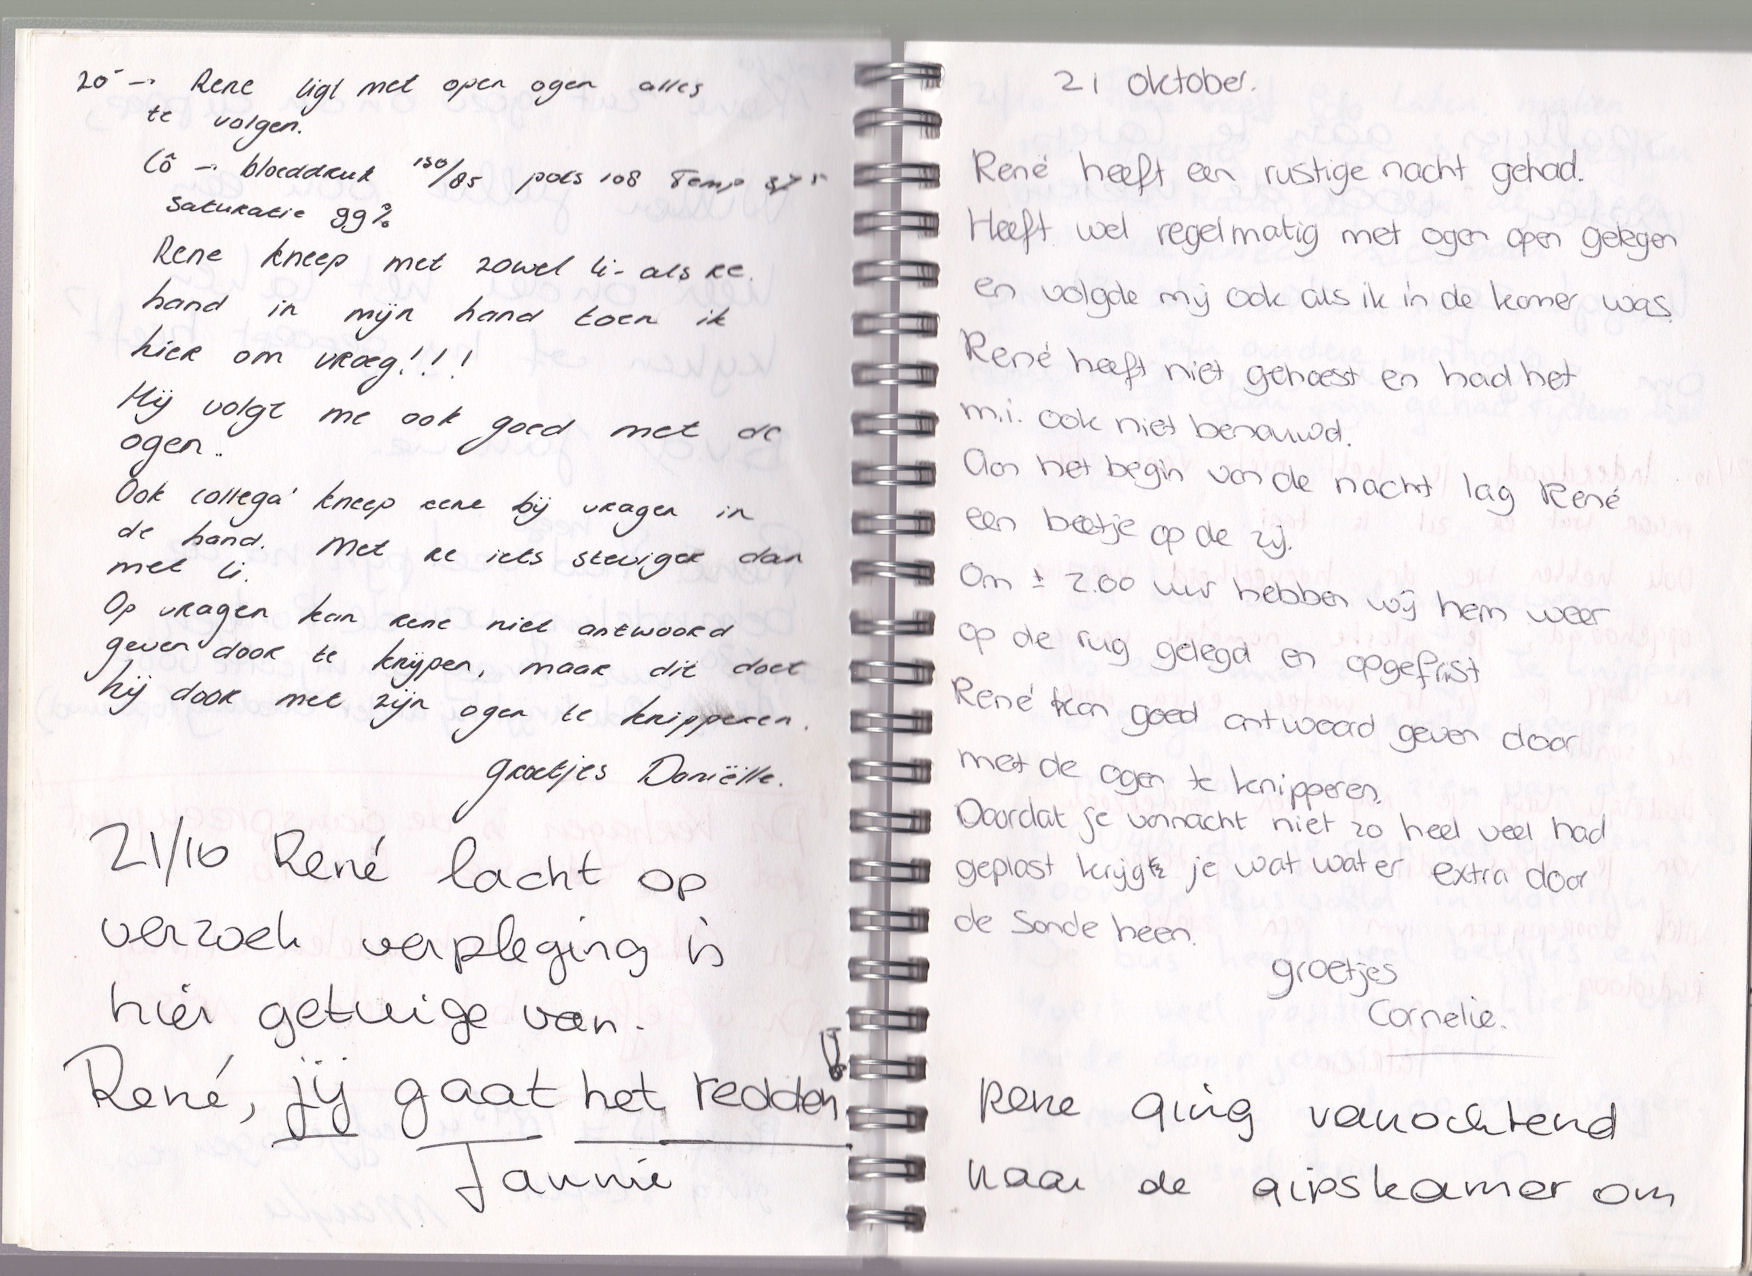 20⁻ → Rene ligt met open ogen alles
te volgen.
Cô → bloeddruk 130/85 pols 108 Temp 37⁵
Saturatie 99%
Rene kneep met zowel li- als re.
hand in mijn hand toen ik
hier om vroeg!!!
Hij volgt me ook goed met de
ogen..
Ook collega' kneep rene bij vragen in
de hand. Met re iets steviger dan
met li.
Op vragen kan rene niet antwoord
geven door te knijpen, maar dit doet
hij door met zijn ogen te knipperen.
groetjes Daniëlle.
21/10 René lacht op
verzoek verpleging is
hier getuige van.
René, jij gaat het redden!
Jannie
21 oktober.
René heeft een rustige nacht gehad.
Heeft wel regelmatig met ogen open gelegen
en volgde mij ook als ik in de kamer was.
René heeft niet gehoest en had het
m.i. ook niet benauwd.
Aan het begin van de nacht lag René
een beetje op de zij.
Om ± 2.00 uur hebben wij hem weer
op de rug gelegd en opgefrist
René kan goed antwoord geven door
met de ogen te knipperen.
Doordat je vannacht niet zo heel veel had
geplast krijg je wat water extra door
de Sonde heen.
groetjes
Cornelie.
Rene ging vanochtend
naar de gipskamer om